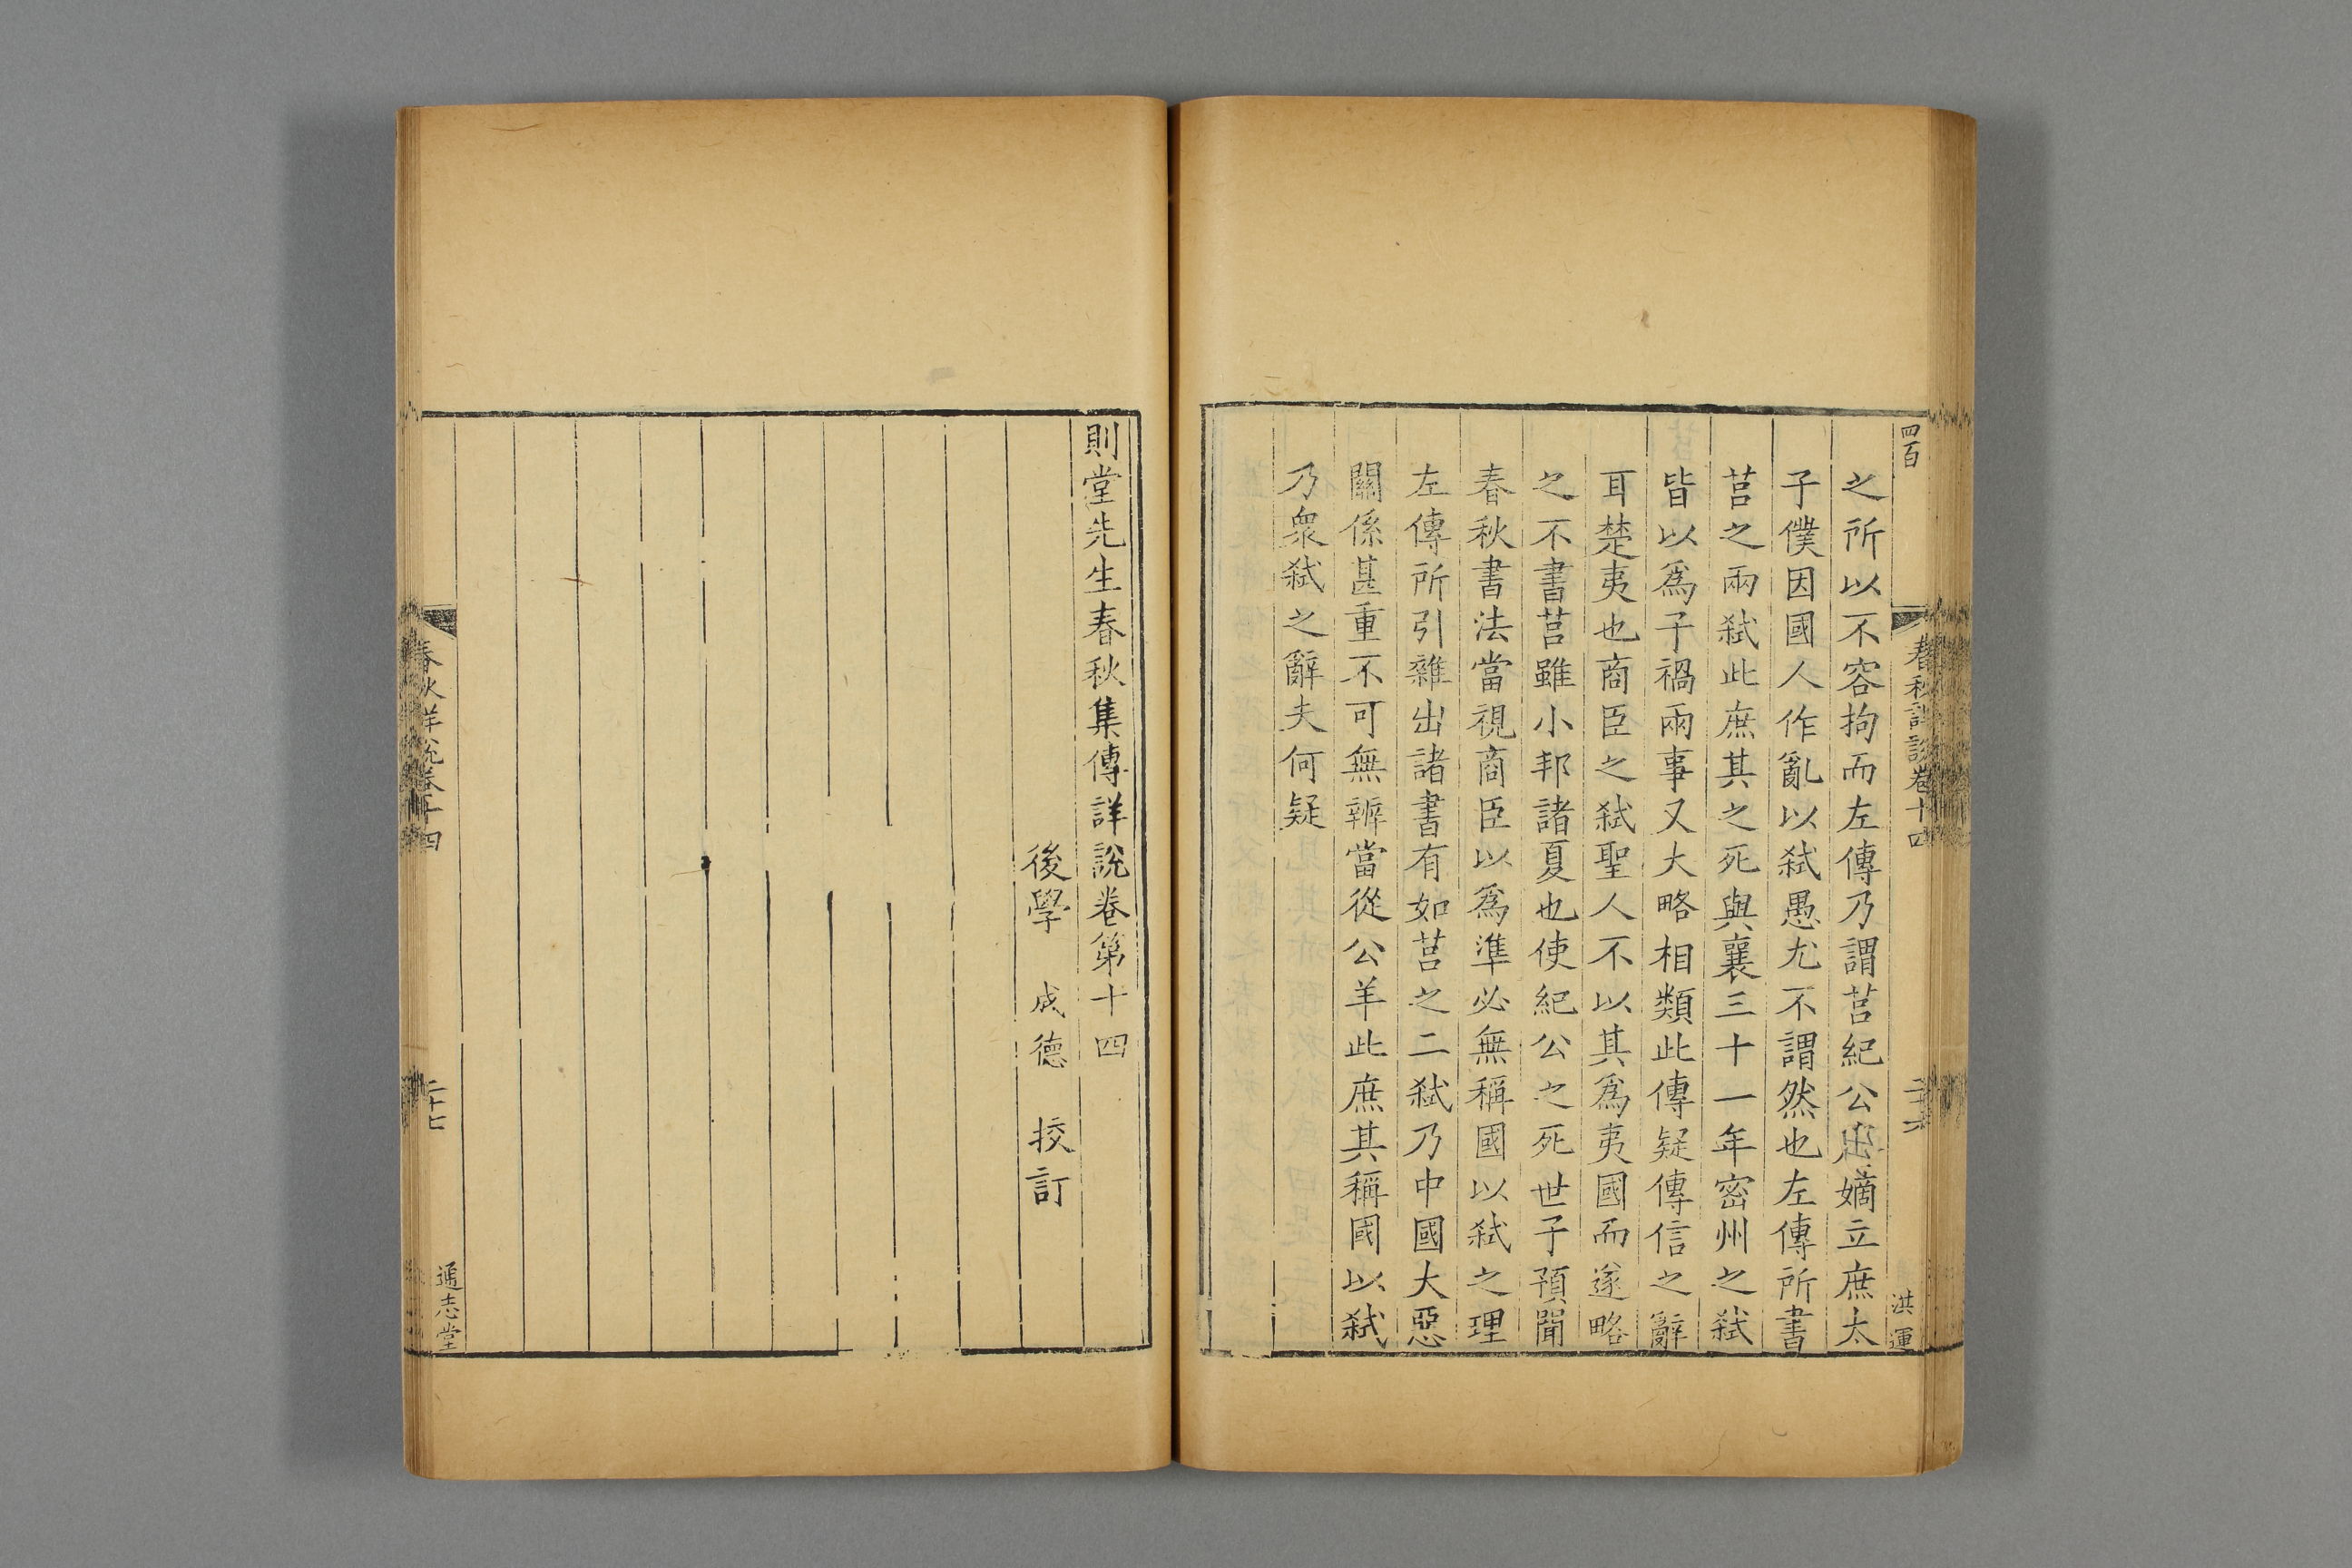 四百
春秋詳說卷十四
二十六
洪運
之所以不容拘而左傳乃謂莒紀公黜嫡立庶太
子僕因國人作亂以弒愚尤不謂然也左傳所書
莒之兩弒此庶其之死與襄三十一年密州之弒
皆以爲子禍兩事又大略相類此傳疑傳信之辭
耳楚夷也商臣之弒聖人不以其爲夷國而遂略
之不書莒雖小邦諸夏也使紀公之死世子預聞
春秋書法當視商臣以爲準必無稱國以弒之理
左傳所引雜出諸書有如莒之二弒乃中國大惡
關係甚重不可無辨當從公羊此庶其稱國以弒
乃衆弒之辭夫何疑
則堂先生春秋集傳詳說卷第十四
後學 成德 挍訂
春秋詳說卷十四
二十七
通志堂